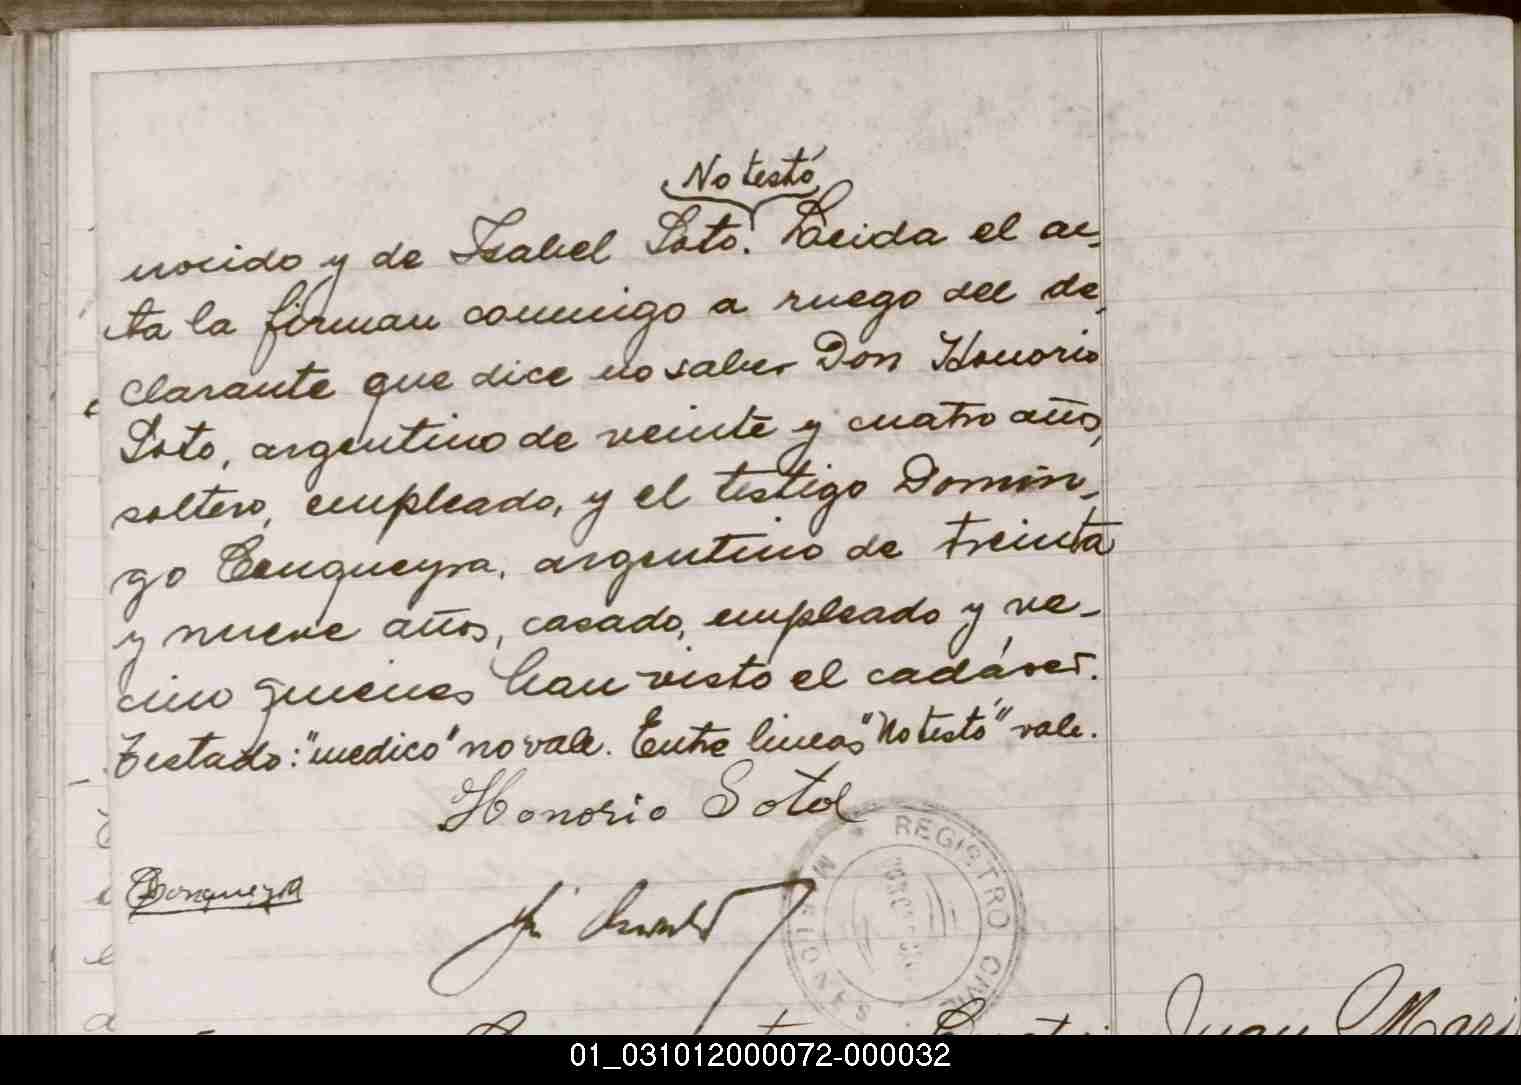 No testó
nocido y de Isabel Soto. Leida el ac-
ta la firman conmigo a ruego del de-
clarante que dice no saber Don Honorio
Soto, argentino de veinte y cuatro años,
soltero, empleado, y el testigo Domin-
go Cenqueyra, argentino de treinta
y nueve años, casado, empleado y ve-
cino quienes han visto el cadáver.
Testado: "medico" no vale. Entre lineas "No testó" vale.
Honorio Soto
REGISTRO CIVIL
MISIONES
Juan Mari
01_031012000072-000032